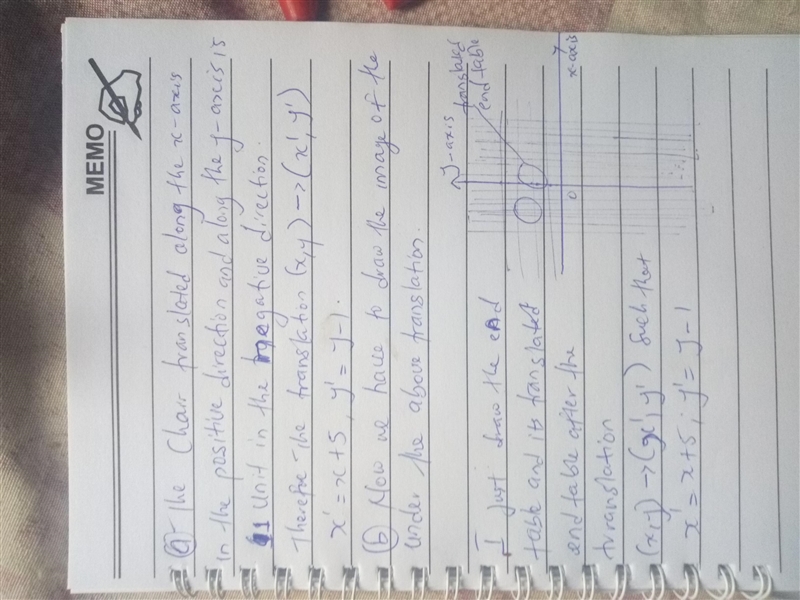 MEMO
(a) The Chair translated along the x-axis
in the positive direction and along the y-axis is
1 Unit in the negative direction.
Therefore the translation (x,y) -> (x', y')
x' = x+5, y' = y-1.
(b) Now we have to draw the image of the
under the above translation.
I just draw the end
table and its translated
end table after the
translation
(x,y) -> (x', y') such that
x' = x+5, y' = y-1
y-axis
translated
end table
0
x-axis